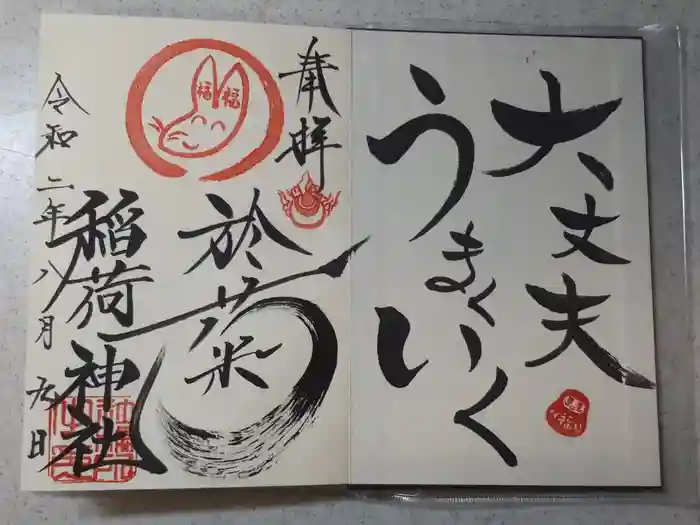 大丈夫
うまくいく
奉拝
福福
於菊
稲荷神社
令和二年八月九日